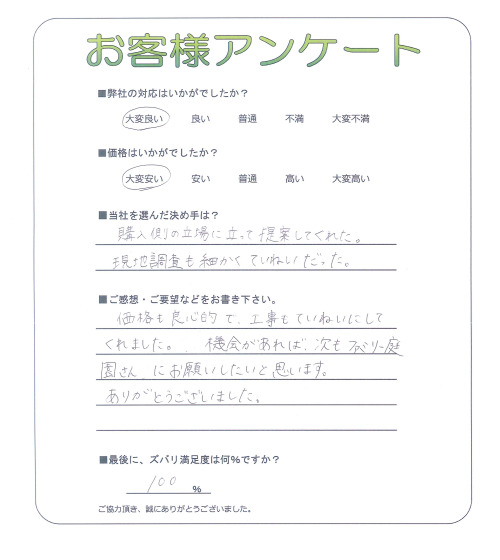 お客様アンケート
■弊社の対応はいかがでしたか？
大変良い 良い 普通 不満 大変不満
■価格はいかがでしたか？
大変安い 安い 普通 高い 大変高い
■当社を選んだ決め手は？
購入側の立場に立って提案してくれた。
現地調査も細かくていねいだった。
■ご感想・ご要望などをお書き下さい。
価格も良心的で、工事もていねいにして
くれました。機会があれば、次もファミリー庭
園さんにお願いしたいと思います。
ありがとうございました。
■最後に、ズバリ満足度は何%ですか？
100 %
ご協力頂き、誠にありがとうございました。